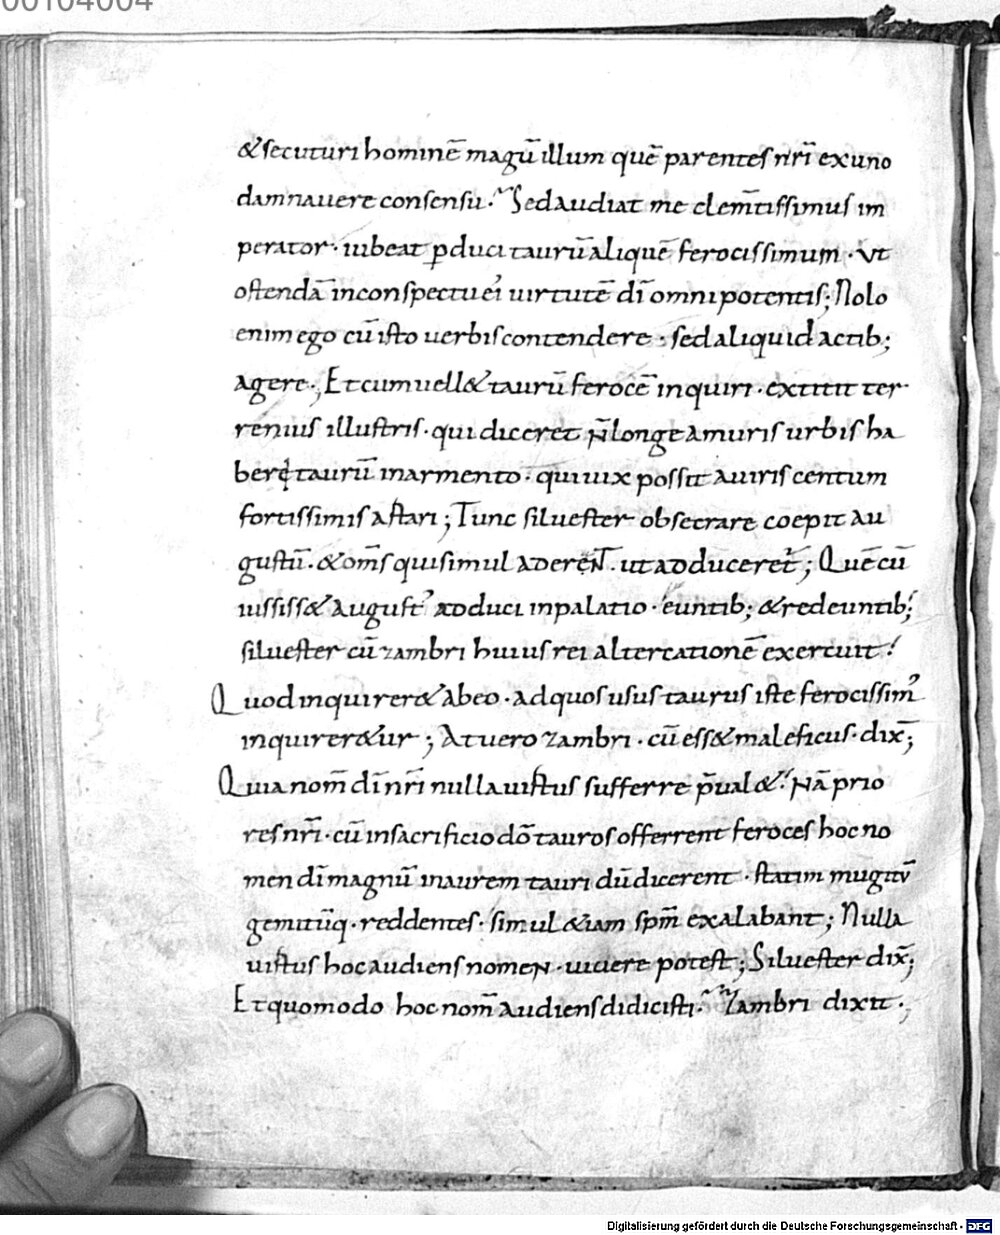 00104004
&secuturi hominē magū illum quē parentes nr̄i exuno
damnauere consensu. Sed audiat me clem̄tissimus im
perator · iubeat ꝑduci taurū aliquē ferocissimum · ut
ostendā inconspectu ei' uirtutē dī omnipotentis; Nolo
enim ego cū isto uerbis contendere · sed aliquid actib;
agere·, Et cum uell& taurū ferocē inquiri · extitit ter
renius illustris · qui diceret n̄ longe a muris urbis ha
berę taurū in armento · qui uix possit a uiris centum
fortissimis astari; Tunc siluester obsecrare coepit au
gustū · & om̄s qui simul aderęnt · ut adduceret'; Quē cū
iussiss& august' adduci inpalatio · euntib; & redeuntib;
siluester cū zambri huius rei altercationē exercuit:
Quod inquirer& abeo · ad quos usus taurus iste ferocissim'
inquirer&ur; At uero zambri · cū ess& maleficus · dix̄;
Quia nom̄ dī nr̄i nulla uirtus sufferre p̄ual&: Nā prio
res nr̄i · cū insacrificio dō tauros offerrent feroces hoc no
men dī magnū inaurem tauri dū dicerent · statim mugitū
gemitūq · reddentes · simul &iam sp̄m exalabant; Nulla
uirtus hoc audiens nomen · uiuere potest; Siluester dix̄;
Et quomodo hoc nom̄ audiens didicisti · Zambri dixit·,
Digitalisierung gefördert durch die Deutsche Forschungsgemeinschaft - DFG